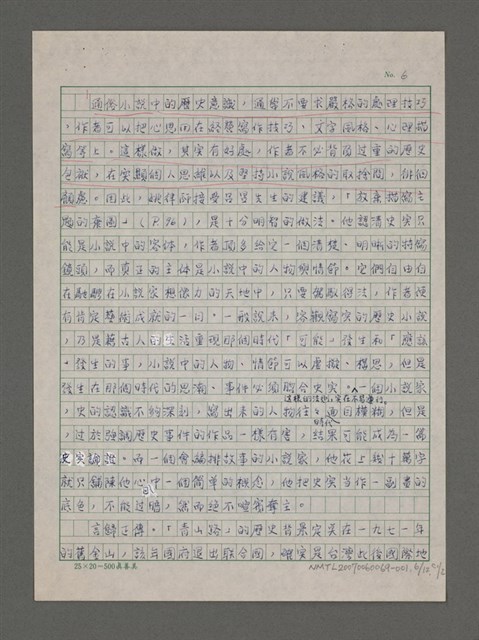 No. 6
通俗小說中的歷史意識，通常不要求嚴格的處理技巧
，作者可以把心思用在經營寫作技巧、文字風格、心理描
寫等上。這樣做，其實有好處，作者不必背負過重的歷史
包袱，在突顯個人思維以及堅持小說風格的取捨間，徘徊
躊躇。因此，姚偉的接受呂昱先生的建議，「放棄描寫主
題的意圖」（P.96），是十分明智的做法。他認清史實只
能是小說中的客體，作者頂多給它一個清楚、明晰的特寫
鏡頭，而真正的主體是小說中的人物與情節。它們自由自
在馳騁在小說家想像力的天地中，只要駕馭得法，作者便
有肯定藝術成就的一日。一般說來，客觀寫實的歷史小說
，乃是藉古人的生活重現那個時代「可能」發生和「應該
」發生的事，小說中的人物、情節可以虛擬、構思，但是
發生在那個時代的思潮、事件必須脗合史實。一個小說家
這樣的活動實在不易進行。
，史的認識不夠深刻，寫出來的人物往往面目模糊，但是
時代
，過於強調歷史事件的作品一樣有害，結果可能成為一篇
史實論述。而一個會編排故事的小說家，他花上幾十萬字
就只鋪陳他心中一個簡單的概念，他把史實當作一副畫的
底色，不能過暗，然而絕不喧賓奪主。
言歸正傳。「青山路」的歷史背景定在一九七一年
的舊金山，該年國府退出聯合國，確實是台灣此後國際地
25×20=500
NMTL20070060069-001, 6/12